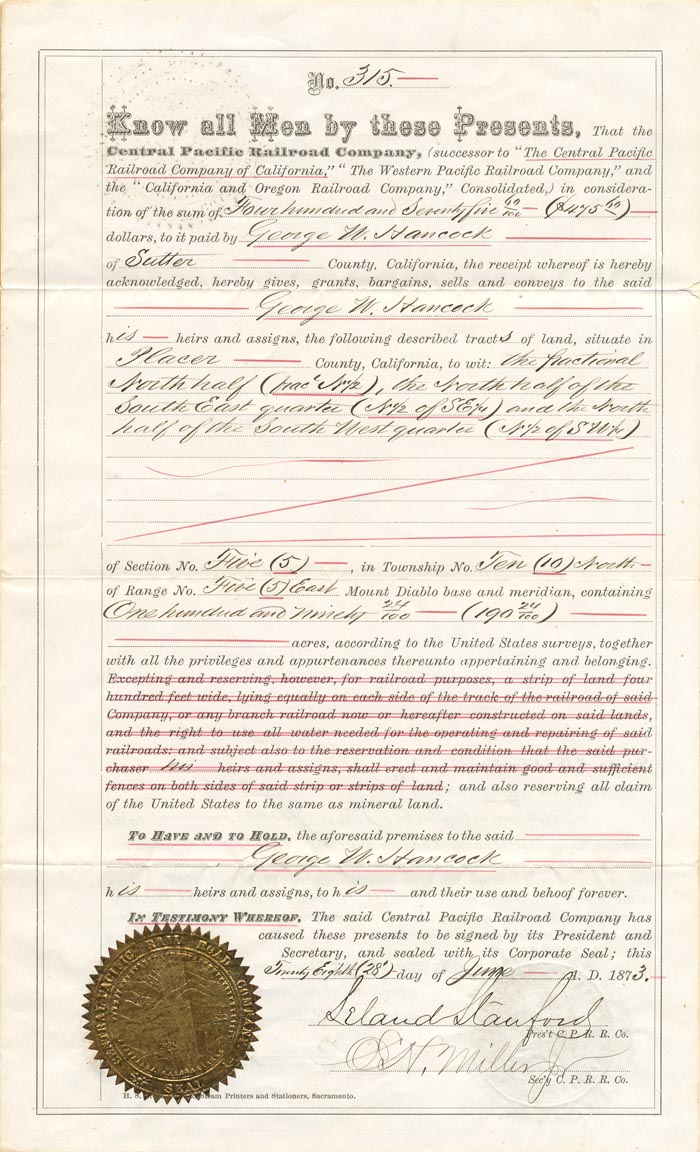 No. 315.
Know all Men by these Presents, That the
Central Pacific Railroad Company, (successor to "The Central Pacific
Railroad Company of California," "The Western Pacific Railroad Company," and
the "California and Oregon Railroad Company," Consolidated,) in considera-
tion of the sum of Four hundred and Seventy five 60/100 ($475 60/100)
dollars, to it paid by George W. Hancock
of Sutter County, California, the receipt whereof is hereby
acknowledged, hereby gives, grants, bargains, sells and conveys to the said
George W. Hancock
his heirs and assigns, the following described tracts of land, situate in
Placer County, California, to wit: the fractional
North half (fracl N½), the North half of the
South East quarter (N½ of SE¼) and the North
half of the South West quarter (N½ of SW¼)
of Section No. Five (5), in Township No. Ten (10) North
of Range No. Five (5) East Mount Diablo base and meridian, containing
One hundred and ninety 24/100 (190 24/100)
acres, according to the United States surveys, together
with all the privileges and appurtenances thereunto appertaining and belonging.
Excepting and reserving, however, for railroad purposes, a strip of land four
hundred feet wide, lying equally on each side of the track of the railroad of said
Company, or any branch railroad now or hereafter constructed on said lands,
and the right to use all water needed for the operating and repairing of said
railroads; and subject also to the reservation and condition that the said pur-
chaser his heirs and assigns, shall erect and maintain good and sufficient
fences on both sides of said strip or strips of land; and also reserving all claim
of the United States to the same as mineral land.
To Have and to Hold, the aforesaid premises to the said
George W. Hancock
his heirs and assigns, to his and their use and behoof forever.
In Testimony Whereof, The said Central Pacific Railroad Company has
caused these presents to be signed by its President and
Secretary, and sealed with its Corporate Seal; this
Twenty Eighth (28") day of June A. D. 1873.
Leland Stanford
Pres't C. P. R. R. Co.
E H. Miller Jr
Sec'y C. P. R. R. Co.
CENTRAL PACIFIC RAIL ROAD COMPANY
SEAL
H. S. Steam Printers and Stationers, Sacramento.